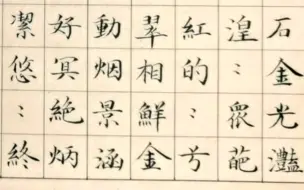 石金光灩
湟：衆葩
紅的：兮
翠相鮮金
動烟景涵
好冥絶炳
潔悠：終